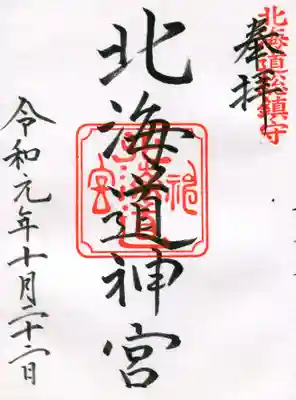 北海道総鎮守
奉拝
北海道神宮
令和元年十月二十二日